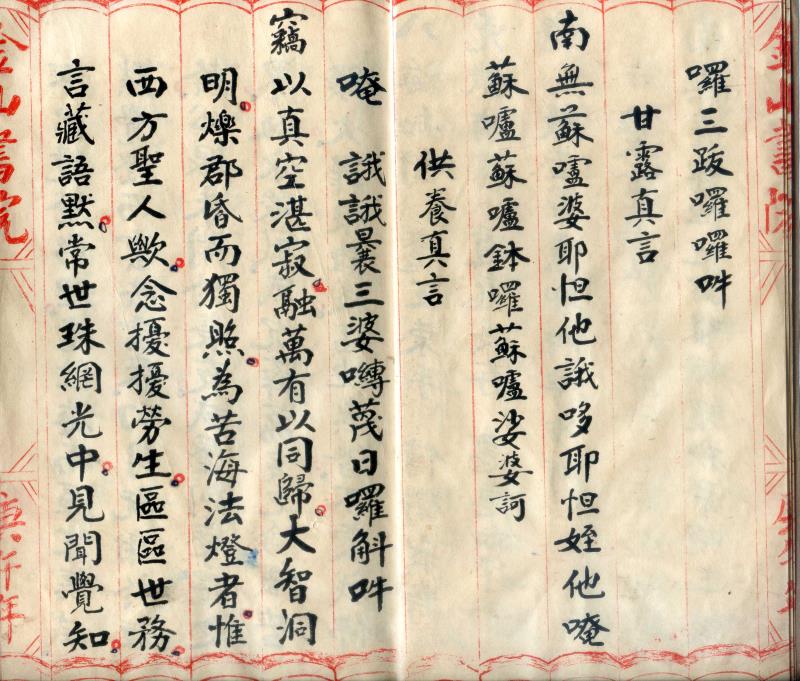 金山書院
囉三跋囉囉吽
甘露真言
南無蘇嚧婆耶怛他誐哆耶怛姪他唵
蘇嚧蘇嚧鉢囉蘇嚧娑婆訶
供養真言
唵 誐誐曩三婆嚩茂日囉斛吽
竊以真空湛寂融萬有以同歸大智洞
明爍郡昏而獨照為苦海法燈者惟
西方聖人歟念擾擾勞生區區世務
言藏語默常世珠網光中見聞覺知
金山書院